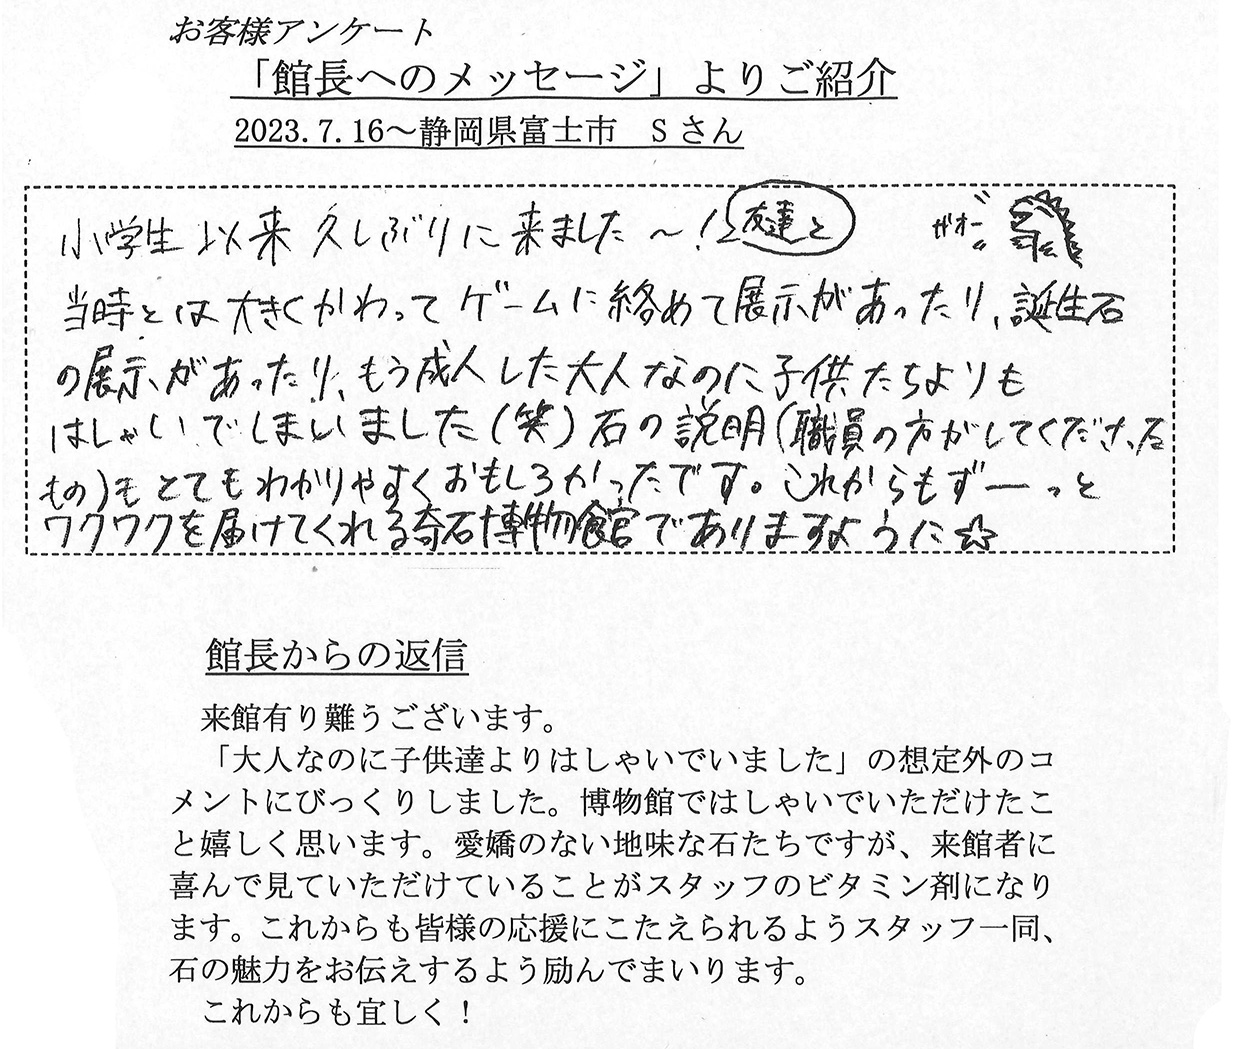 お客様アンケート
「館長へのメッセージ」よりご紹介
2023.7.16～静岡県富士市　Sさん
小学生以来久しぶりに来ました～！友達と
ガオー
当時とは大きくかわってゲームに絡めて展示があったり、誕生石
の展示があったり、もう成人した大人なのに子供たちよりも
はしゃいでしまいました(笑)石の説明(職員の方がしてくださる
もの)もとてもわかりやすくおもしろかったです。これからもずーっと
ワクワクを届けてくれる奇石博物館でありますように☆
館長からの返信
来館有り難うございます。
「大人なのに子供達よりはしゃいでいました」の想定外のコ
メントにびっくりしました。博物館ではしゃいでいただけたこ
と嬉しく思います。愛嬌のない地味な石たちですが、来館者に
喜んで見ていただけていることがスタッフのビタミン剤になり
ます。これからも皆様の応援にこたえられるようスタッフ一同、
石の魅力をお伝えするよう励んでまいります。
これからも宜しく！